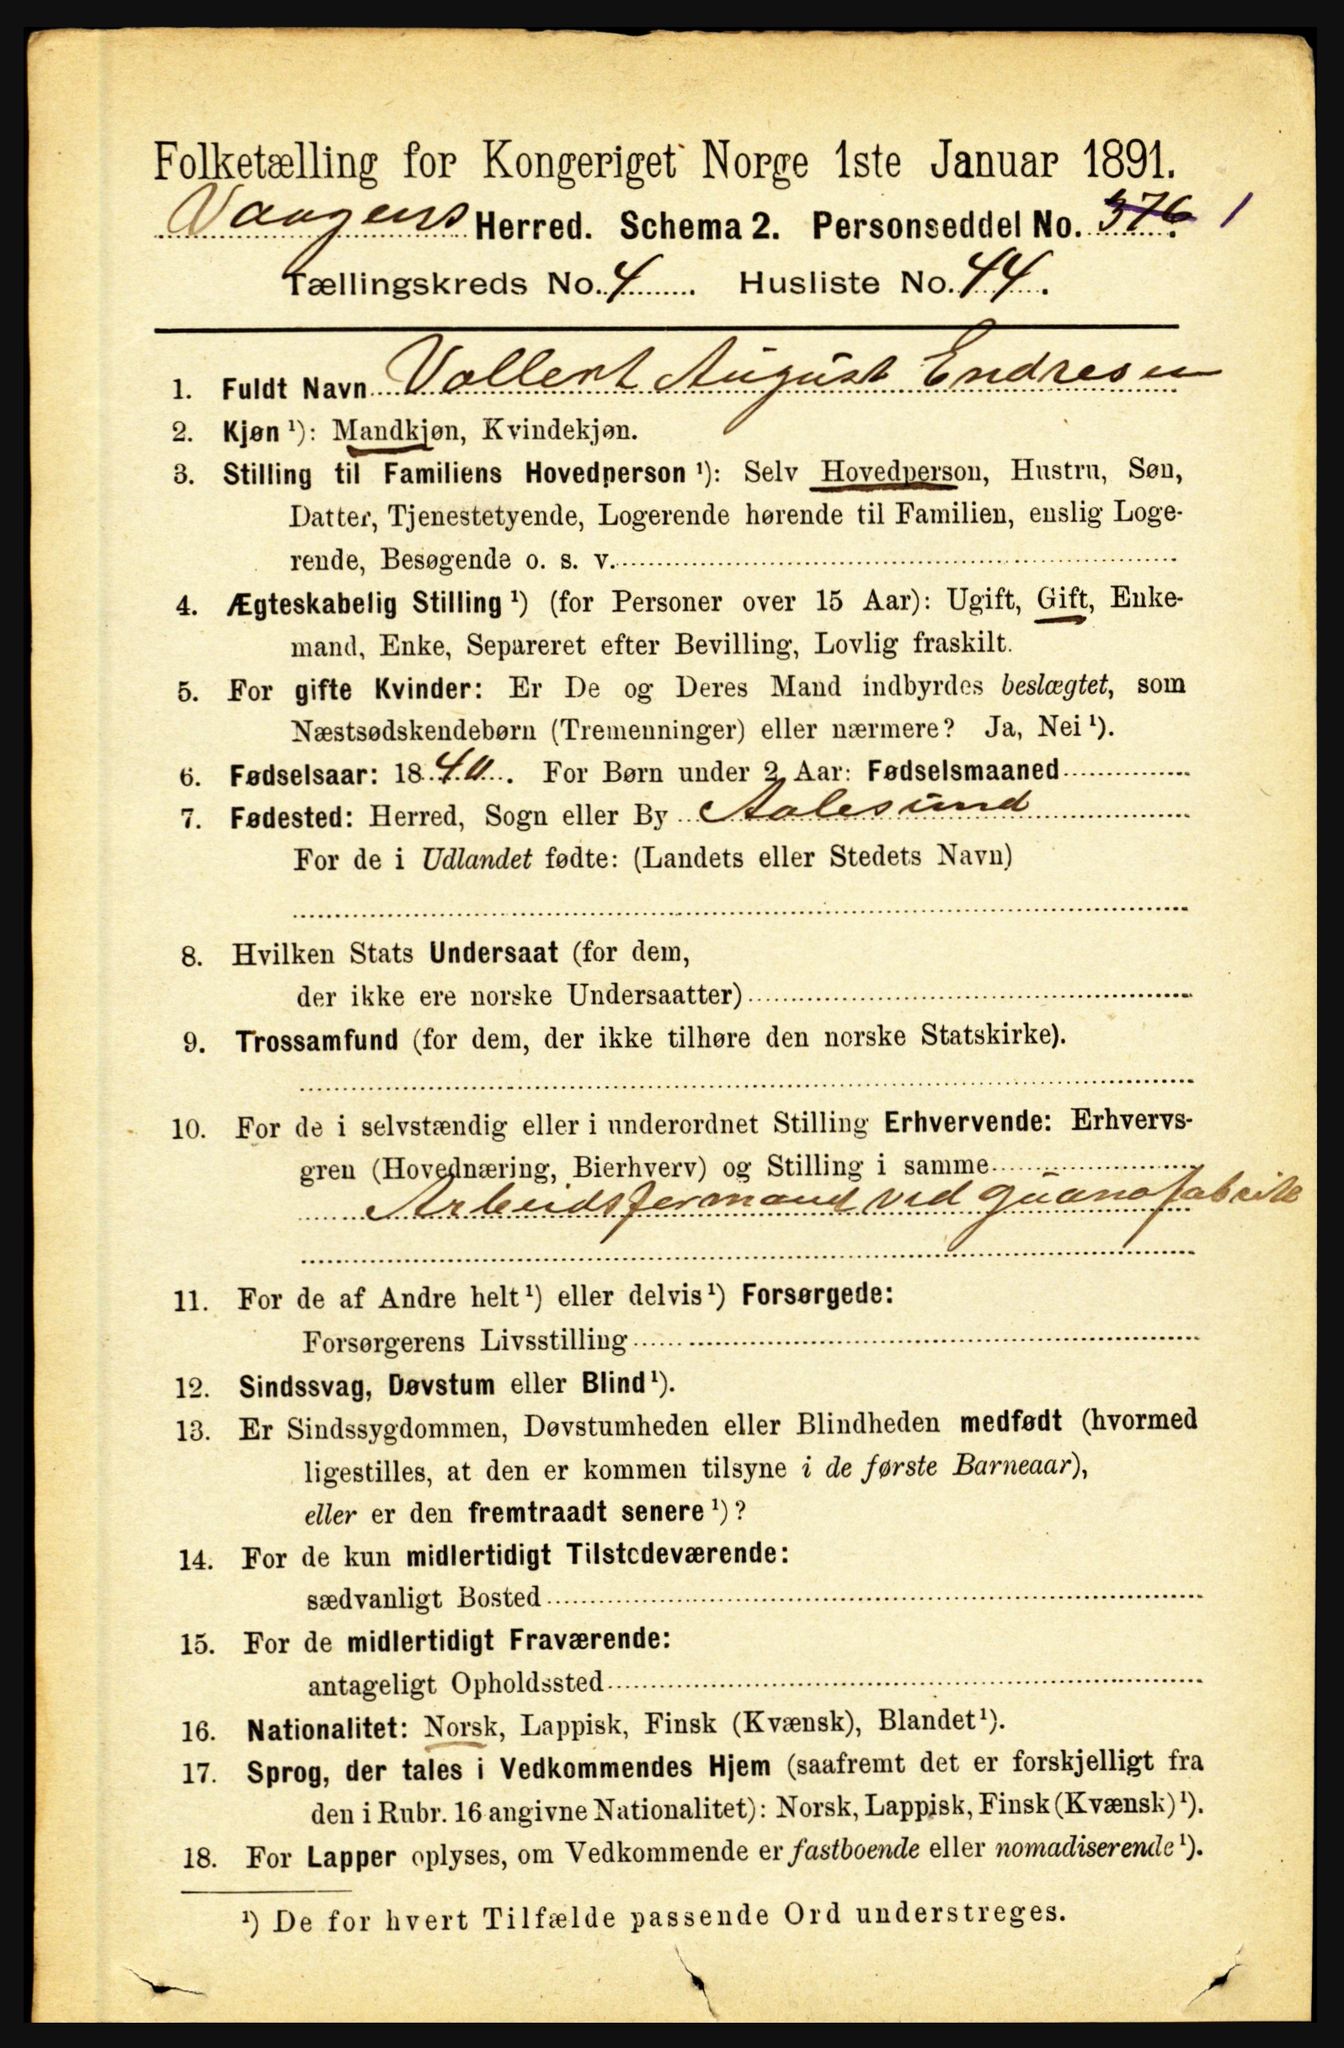 Folketælling for Kongeriget Norge 1ste Januar 1891.
Vaagens Herred. Schema 2. Personseddel No. 376 1
Tællingskreds No. 4 Husliste No. 44.
1. Fuldt Navn Vollert August Endresen
2. Kjøn ¹): Mandkjøn, Kvindekjøn.
3. Stilling til Familiens Hovedperson ¹): Selv Hovedperson, Hustru, Søn,
Datter, Tjenestetyende, Logerende hørende til Familien, enslig Loge-
rende, Besøgende o. s. v.
4. Ægteskabelig Stilling ¹) (for Personer over 15 Aar): Ugift, Gift, Enke-
mand, Enke, Separeret efter Bevilling, Lovlig fraskilt.
5. For gifte Kvinder: Er De og Deres Mand indbyrdes beslægtet, som
Næstsødskendebørn (Tremenninger) eller nærmere? Ja, Nei ¹).
6. Fødselsaar: 1840. For Børn under 2 Aar: Fødselsmaaned
7. Fødested: Herred, Sogn eller By Aalesund
For de i Udlandet fødte: (Landets eller Stedets Navn)
8. Hvilken Stats Undersaat (for dem,
der ikke ere norske Undersaatter)
9. Trossamfund (for dem, der ikke tilhøre den norske Statskirke).
10. For de i selvstændig eller i underordnet Stilling Erhvervende: Erhvervs-
gren (Hovednæring, Bierhverv) og Stilling i samme
Arbeidsformand ved guanofabrik
11. For de af Andre helt ¹) eller delvis ¹) Forsørgede:
Forsørgerens Livsstilling
12. Sindssvag, Døvstum eller Blind ¹).
13. Er Sindssygdommen, Døvstumheden eller Blindheden medfødt (hvormed
ligestilles, at den er kommen tilsyne i de første Barneaar),
eller er den fremtraadt senere ¹)?
14. For de kun midlertidigt Tilstedeværende:
sædvanligt Bosted
15. For de midlertidigt Fraværende:
antageligt Opholdssted
16. Nationalitet: Norsk, Lappisk, Finsk (Kvænsk), Blandet ¹).
17. Sprog, der tales i Vedkommendes Hjem (saafremt det er forskjelligt fra
den i Rubr. 16 angivne Nationalitet): Norsk, Lappisk, Finsk (Kvænsk) ¹).
18. For Lapper oplyses, om Vedkommende er fastboende eller nomadiserende ¹).
¹) De for hvert Tilfælde passende Ord understreges.